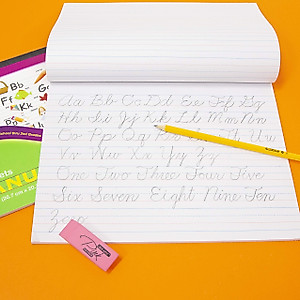 Bb
Ff
Kk
Aa Bb Cc Dd Ee Ff Gg
Hh Ii Jj Kk Ll Mm Nn
Oo Pp Qq Rr Ss Tt Uu
Vv Ww Xx Yy Zz
One Two Three Four Five
Six Seven Eight Nine Ten
Pink